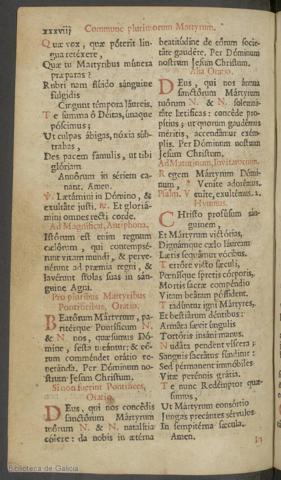 xxxviij Commune plurimorum Martyrum.
Quæ vox, quæ póterit lin-
gua retéxere,
Quæ tu Martyribus múnera
præparas?
Rubri nam flúido sánguine
fúlgidis
Cingunt témpora láureis.
Te summa ô Déitas, únaque
póscimus;
Ut culpas ábigas, nóxia súb-
trahas,
Des pacem famulis, ut tibi
glóriam
Annórum in sériem ca-
nant. Amen.
℣. Lætámini in Dómino, &
exultáte justi, ℟. Et gloriá-
mini omnes recti corde.
Ad Magnificat, Antiphona.
Istórum est enim regnum
cælórum, qui contempsé-
runt vitam mundi, & perve-
nérunt ad præmia regni, &
lavérunt stolas suas in sángui-
ne Agni.
Pro pluribus Martyribus
Pontificibus, Oratio.
Beatórum Mártyrum, pa-
ritérque Pontíficum N.
& N. nos, quæsumus Dó-
mine, festa tueántur: & eó-
rum comméndet orátio ve-
neránda. Per Dóminum no-
strum Jesum Christum.
Si non fuerint Pontifices,
Oratio.
Deus, qui nos concédis
sanctórum Mártyrum
tuórum N. & N. natalítia
cólere: da nobis in ætérna
beatitúdine de eórum socie-
táte gaudére. Per Dóminum
nostrum Jesum Christum.
Alia Oratio.
Deus, qui nos ánnua
sanctórum Mártyrum
tuórum N. & N. solemni-
táte lætíficas: concéde pro-
pítius; ut quorum gaudémus
méritis, accendámur exém-
plis. Per Dóminum nostrum
Jesum Christum.
Ad Matutinum, Invitatorium.
Regem Mártyrum Dómi-
num, * Venite adorémus.
Psalm. Venite, exultémus.
Hymnus.
Christo profúsum sán-
guinem,
Et Mártyrum victórias,
Dignámque cælo láuream
Lætis sequámur vócibus.
Terróre victo sæculi,
Pœnísque spretis córporis,
Mortis sacræ compéndio
Vitam beátam póssident.
Tradúntur igni Mártyres,
Et bestiárum déntibus:
Armáta sævit úngulis
Tortóris insáni manus.
Nudáta pendent víscera;
Sanguis sacrátus fúnditur:
Sed pérmanent immóbiles
Vitæ perénnis grátia.
Te nunc Redémptor quæ-
sumus,
Ut Mártyrum consórtio
Jungas precántes sérvulos
In sempitérna sæcula.
Amen.
In
Biblioteca de Galicia